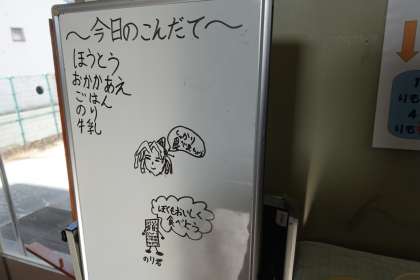 ～今日のこんだて～
ほうとう
おかかあえ
ごはん
のり
牛乳
しっかり
食べましょう
ぼくもおいしく
食べとう
のり君